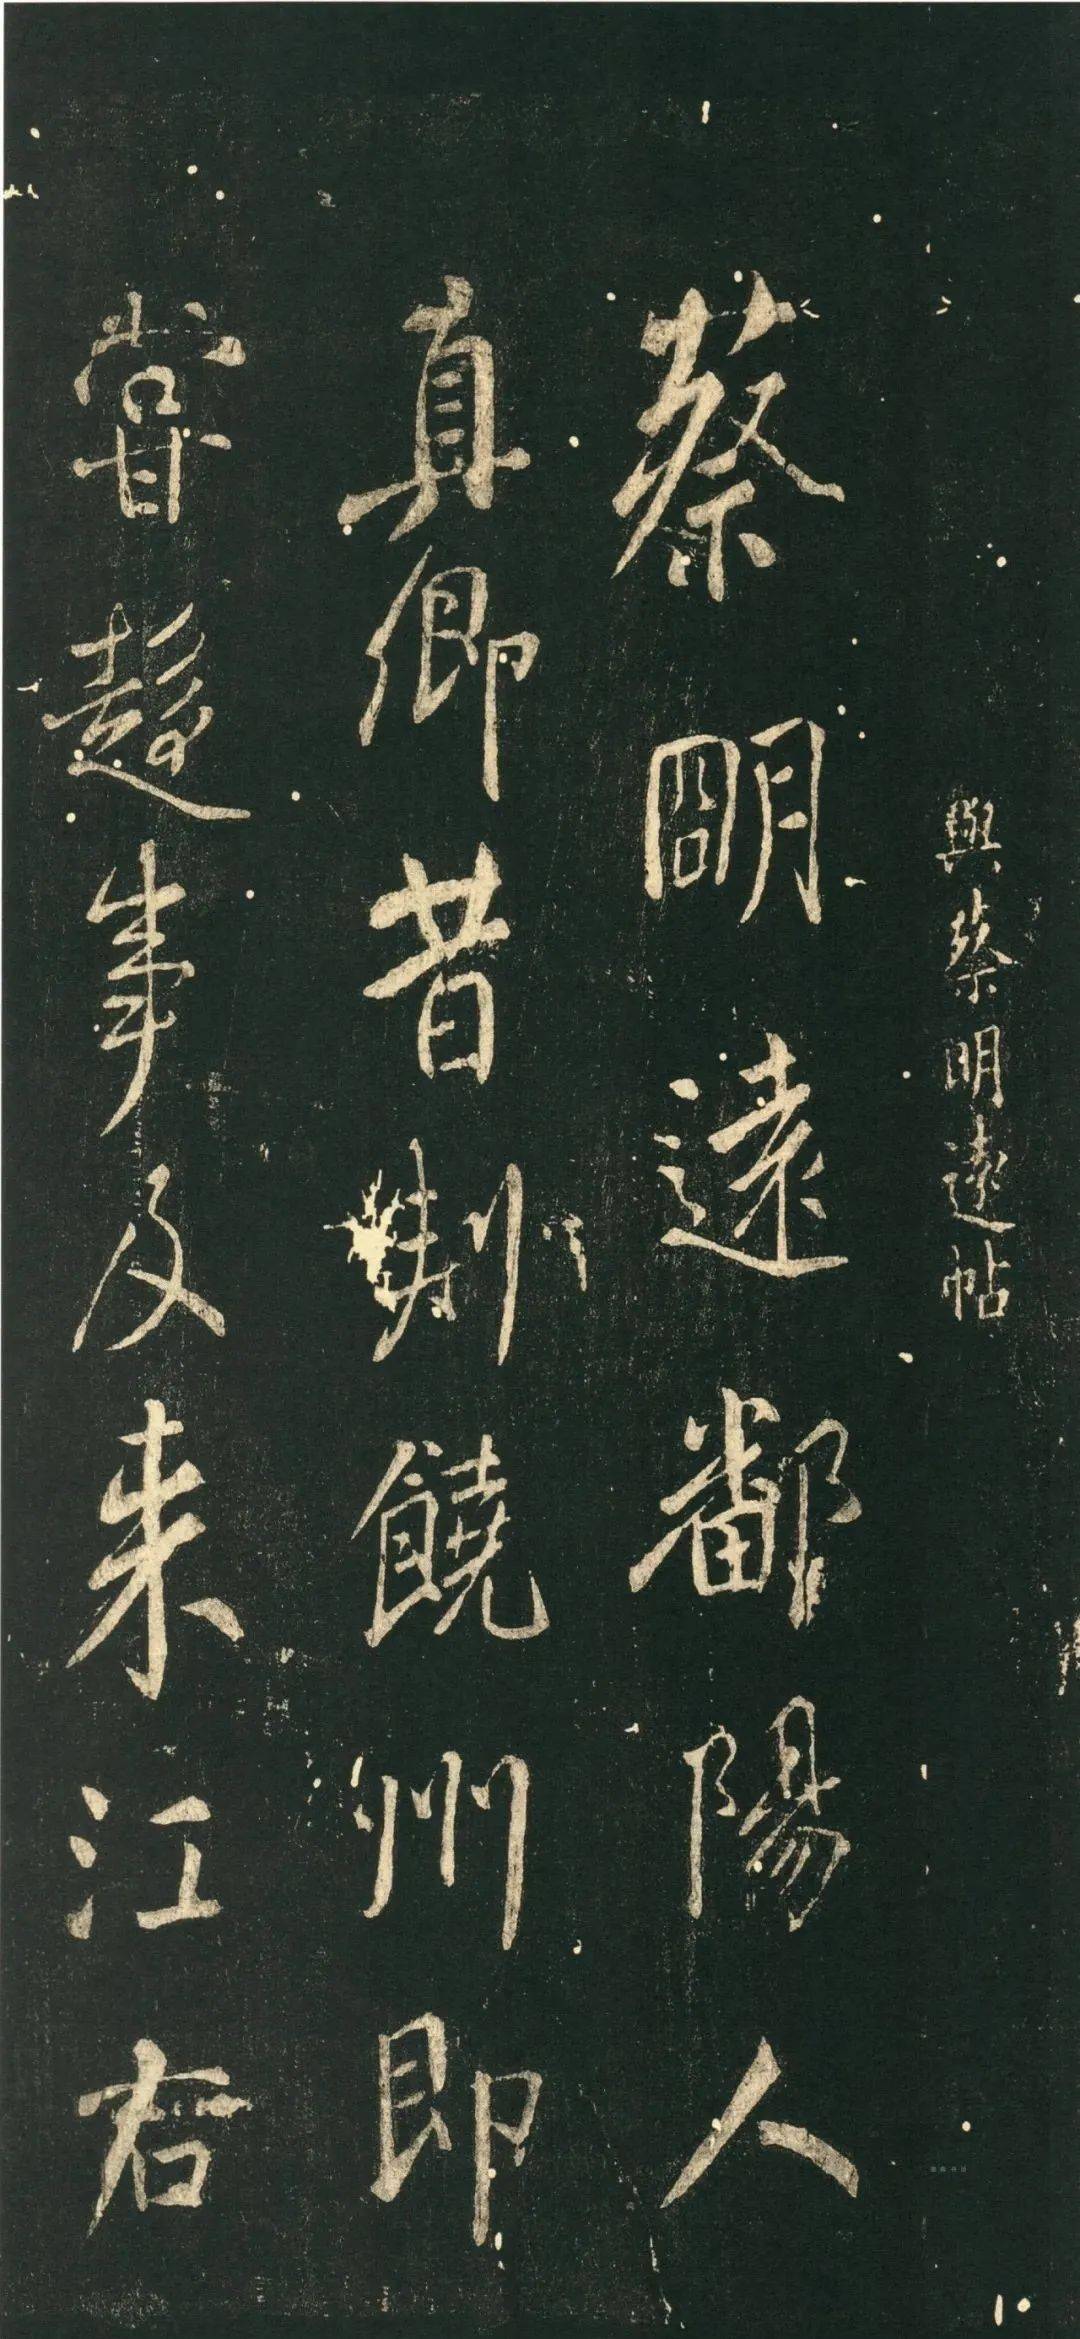 與蔡明遠帖
蔡朙遠鄱陽人
真卿昔刺饒州即
嘗趍事及来江右